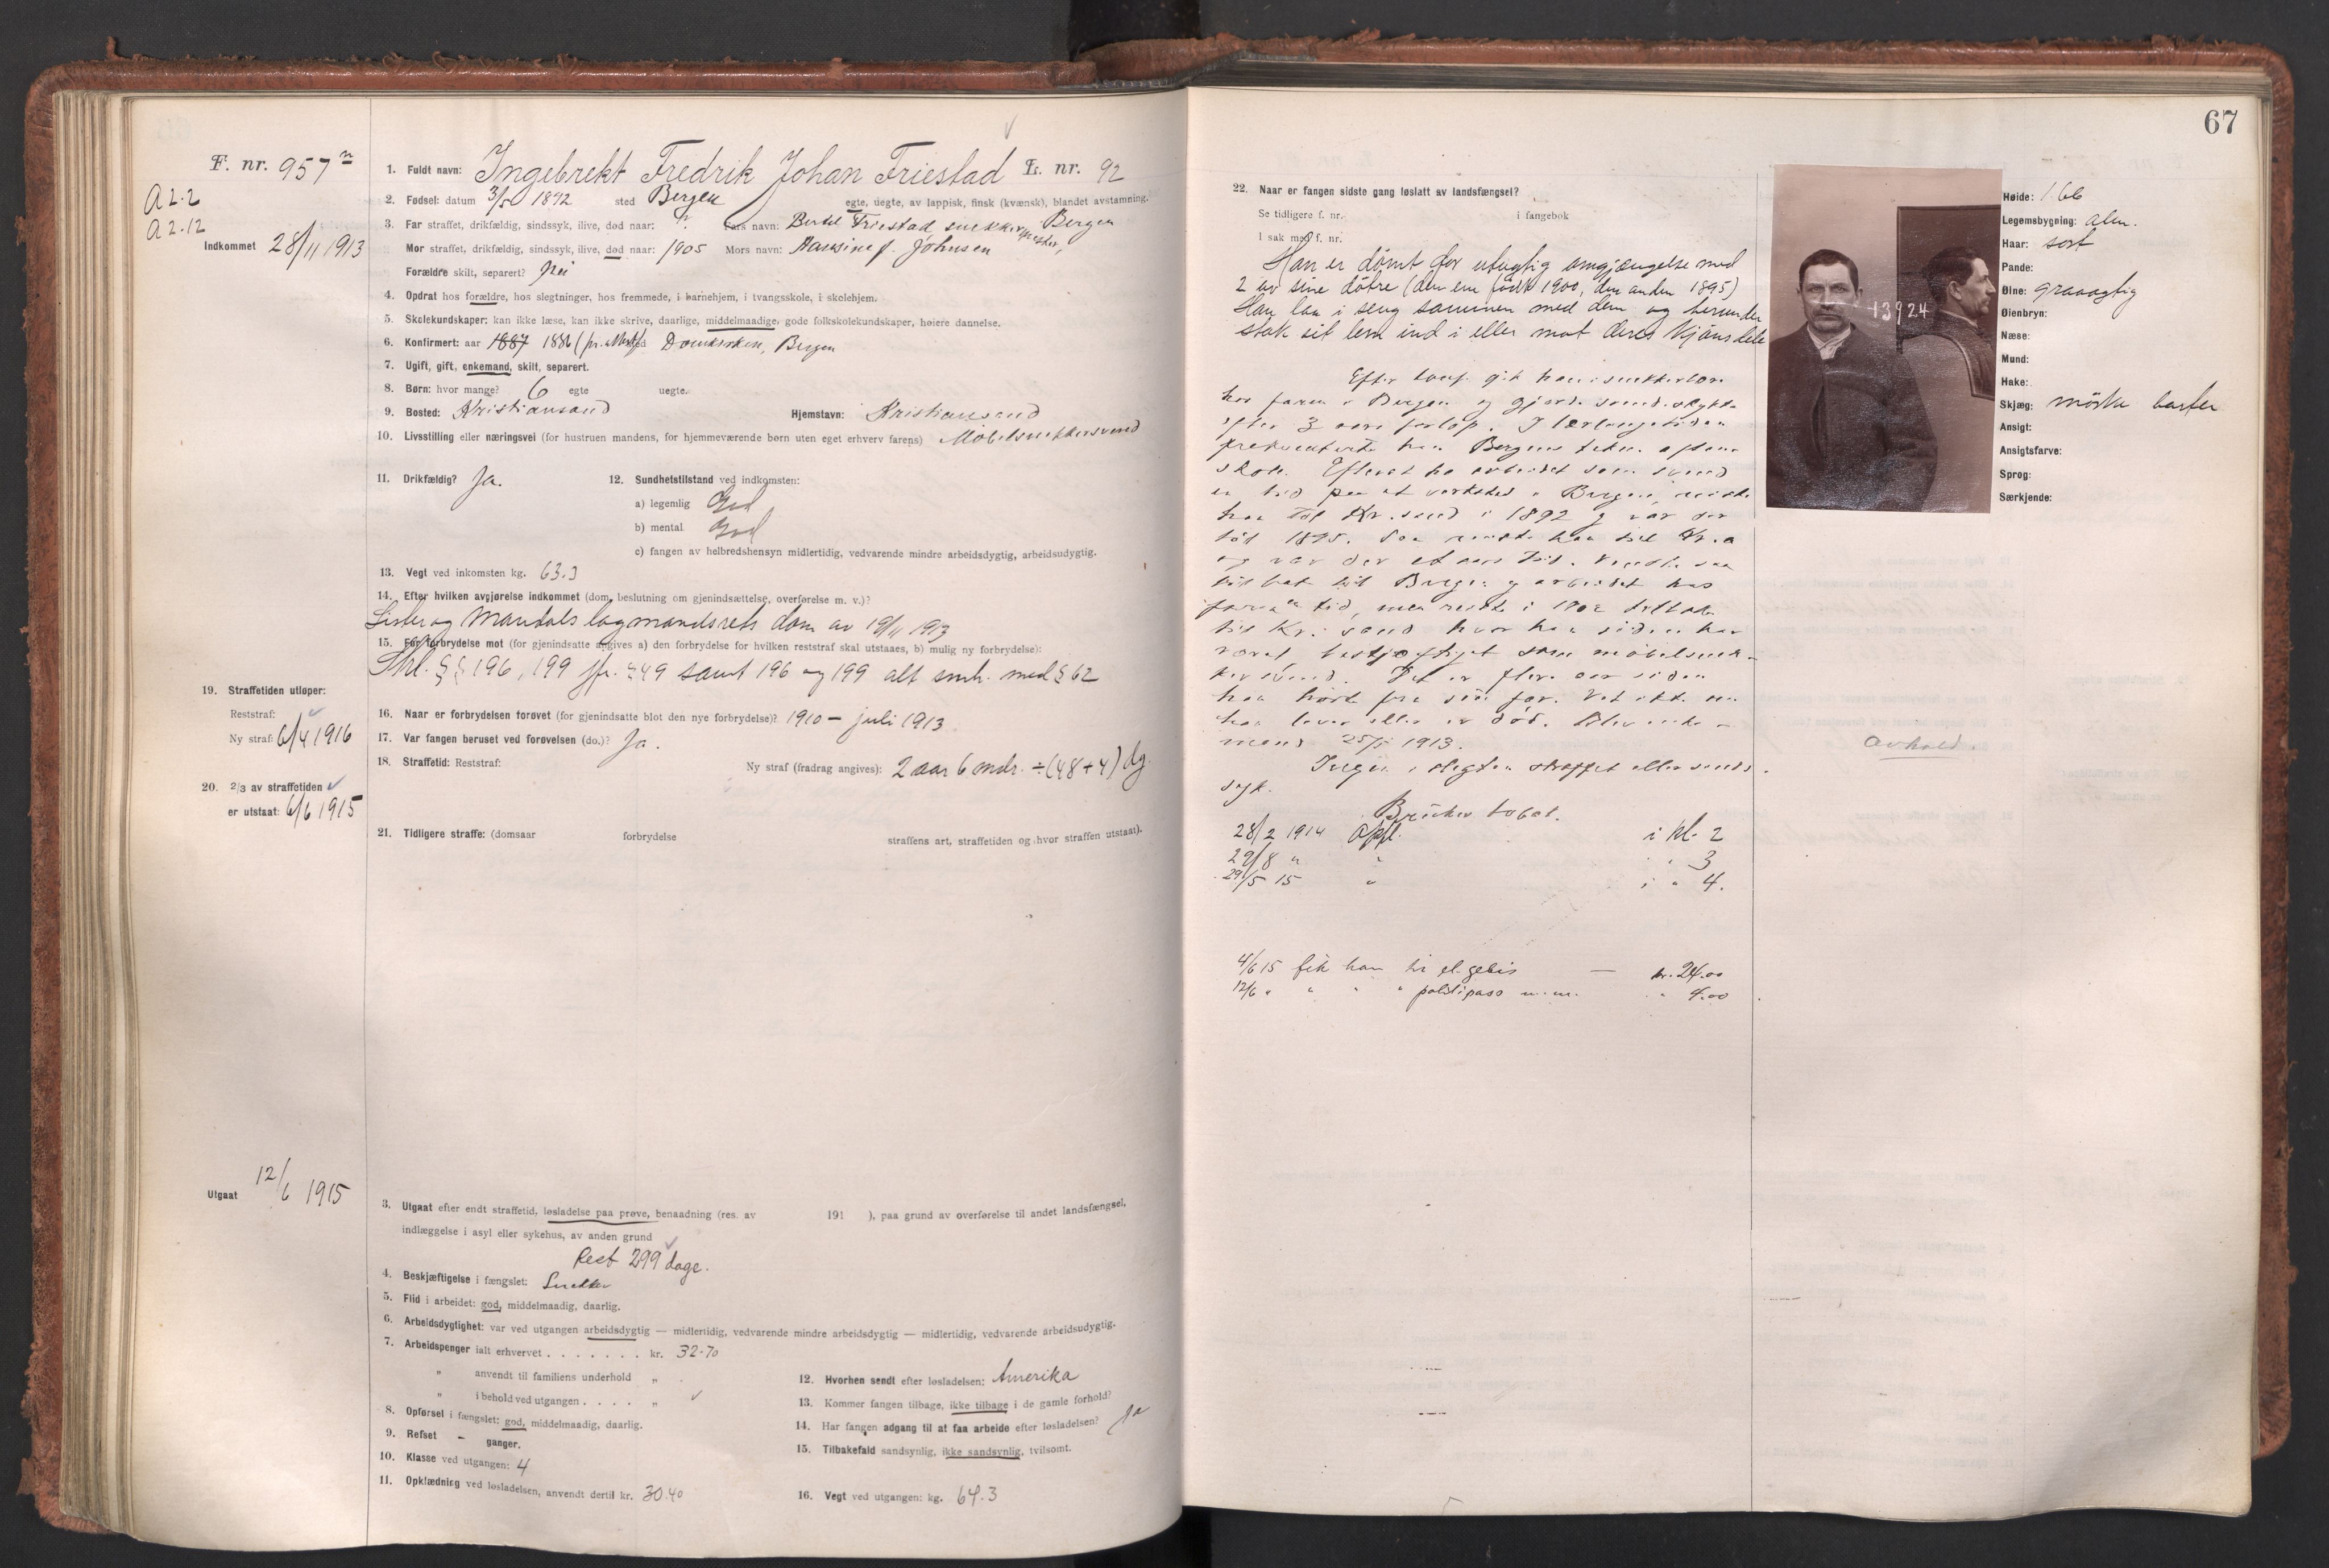 F. nr. 957
A 2.2
A 2.12
Indkommet 28/11 1913
1. Fuldt navn: Ingebrekt Fredrik Johan Friestad L. nr. 92
2. Fødsel: datum 3/5 1872 sted Bergen egte, uegte, av lappisk, finsk (kvænsk), blandet avstamning.
3. Far straffet, drikfældig, sindssyk, ilive, død naar: ? Fars navn: Bertel Friestad snekkermester, Bergen
Mor straffet, drikfældig, sindssyk, ilive, død naar: 1905 Mors navn: Hansine f. Johnsen
Forældre skilt, separert? Nei
4. Opdrat hos forældre, hos slegtninger, hos fremmede, i barnehjem, i tvangsskole, i skolehjem.
5. Skolekundskaper: kan ikke læse, kan ikke skrive, daarlige, middelmaadige, gode folkskolekundskaper, høiere dannelse.
6. Konfirmert: aar 1887 1886 (pr. attest) sted Domkirken, Bergen
7. Ugift, gift, enkemand, skilt, separert.
8. Børn: hvor mange? 6 egte uegte.
9. Bosted: Kristiansand Hjemstavn: Kristiansand
10. Livsstilling eller næringsvei (for hustruen mandens, for hjemmeværende børn uten eget erhverv farens) Møbelsnekkersvend
11. Drikfældig? Ja.
12. Sundhetstilstand ved indkomsten:
a) legemlig God
b) mental God
c) fangen av helbredshensyn midlertidig, vedvarende mindre arbeidsdygtig, arbeidsudygtig.
13. Vegt ved inkomsten kg. 63.3
14. Efter hvilken avgjørelse indkommet (dom, beslutning om gjenindsættelse, overførelse m. v.)?
Lister og Mandals lagmandsrets dom av 19/11 1913
15. For forbrydelse mot (for gjenindsatte angives a) den forbrydelse for hvilken reststraf skal utstaaes, b) mulig ny forbrydelse):
Strl. §§ 196, 199 jfr. § 49 samt 196 og 199 alt smh. med § 62
16. Naar er forbrydelsen forøvet (for gjenindsatte blot den nye forbrydelse)? 1910 – juli 1913
17. Var fangen beruset ved forøvelsen (do.)? Ja.
18. Straffetid: Reststraf: Ny straf (fradrag angives): 2 aar 6 mdr. ÷ (48+4) dg.
19. Straffetiden utløper:
Reststraf:
Ny straf: 6/4 1916
20. 2/3 av straffetiden
er utstaat: 6/6 1915
21. Tidligere straffe: (domsaar forbrydelse straffens art, straffetiden og hvor straffen utstaat).
Utgaat 12/6 1915
3. Utgaat efter endt straffetid, løsladelse paa prøve, benaadning (res. av 191 ), paa grund av overførelse til andet landsfængsel,
indlæggelse i asyl eller sykehus, av anden grund
Rest 299 dage.
4. Beskjæftigelse i fængslet: Snekker
5. Flid i arbeidet: god, middelmaadig, daarlig.
6. Arbeidsdygtighet: var ved utgangen arbeidsdygtig — midlertidig, vedvarende mindre arbeidsdygtig — midlertidig, vedvarende arbeidsudygtig.
7. Arbeidspenger ialt erhvervet . . . . . . . kr. 32.70
" anvendt til familiens underhold "
" i behold ved utgangen . . . . "
8. Opførsel i fængslet: god, middelmaadig, daarlig.
9. Refset – ganger.
10. Klasse ved utgangen: 4
11. Opklædning ved løsladelsen, anvendt dertil kr. 30.40
12. Hvorhen sendt efter løsladelsen: Amerika
13. Kommer fangen tilbage, ikke tilbage i de gamle forhold?
14. Har fangen adgang til at faa arbeide efter løsladelsen? Ja
15. Tilbakefald sandsynlig, ikke sandsynlig, tvilsomt.
16. Vegt ved utgangen: kg. 64.3
67
22. Naar er fangen sidste gang løslatt av landsfængsel?
Se tidligere f. nr. i fangebok
I sak med f. nr.
Han er dømt for utugtig omgjængelse med
2 av sine døtre (den ene født 1900, den anden 1895)
Han laa i seng sammen med dem og herunder
stak sit lem ind i eller mot deres kjønsdele
Efter konf. gik han i snekkerlære
hos faren i Bergen og gjorde svendestykke
efter 3 aars forløp. I læretiden
frekventerte han Bergens tekn. aften
skole. Efterat ha arbeidet som svend
en tid paa et verksted i Bergen, reiste
han til Kr.sand i 1892 og var der
til 1895. Saa reiste han til Kr.a
og var der et aars tid. Vendte saa
tilbake til Bergen og arbeidet hos
faren en tid, men reiste i 1902 tilbake
til Kr.sand hvor han siden har
været beskjæftiget som møbelsnek-
kersvend. Det er flere aar siden
han hørte fra sin far. Vet ikke om
han lever eller er død. Blev enke-
mand 25/5 1913.
Ingen i slegten straffet eller sinds-
syk.
Bruker tobak.
28/2 1914 Opfl. i kl. 2
29/8 " " " 3
29/5 15 " i " 4.
4/6 15 fik han til et gebis — kr. 24.00
12/6 " " " " politipass m.m. " 4.00
13924
Høide: 166
Legemsbygning: alm.
Haar: sort
Pande:
Øine: graaagtig
Øienbryn:
Næse:
Mund:
Hake:
Skjæg: mørke barter
Ansigt:
Ansigtsfarve:
Sprog:
Særkjende:
avhold.